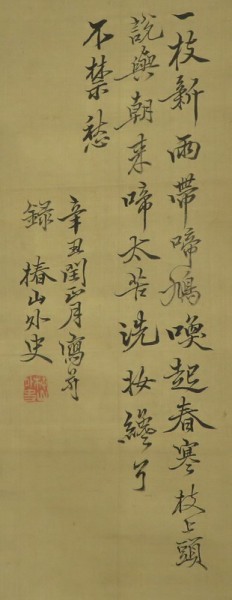 一枝新雨帶啼鳩喚起春寒枝上頭
說與朝來啼太苦洗妝纔了
不禁愁
辛丑閏正月寫并
錄 椿山外史